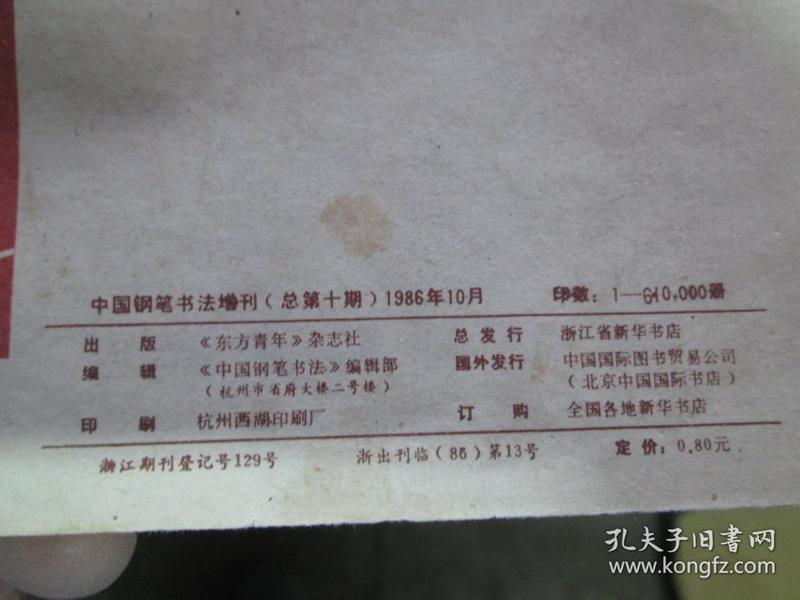 中国钢笔书法增刊（总第十期）1986年10月　印数：1—610,000册
出　版　《东方青年》杂志社　总发行　浙江省新华书店
编　辑　《中国钢笔书法》编辑部　国外发行　中国国际图书贸易公司
（杭州市省府大楼二号楼）　（北京中国国际书店）
印　刷　杭州西湖印刷厂　订　购　全国各地新华书店
浙江期刊登记号129号　浙出刊临（86）第13号　定价：0.80元
孔夫子旧书网
www.kongfz.com